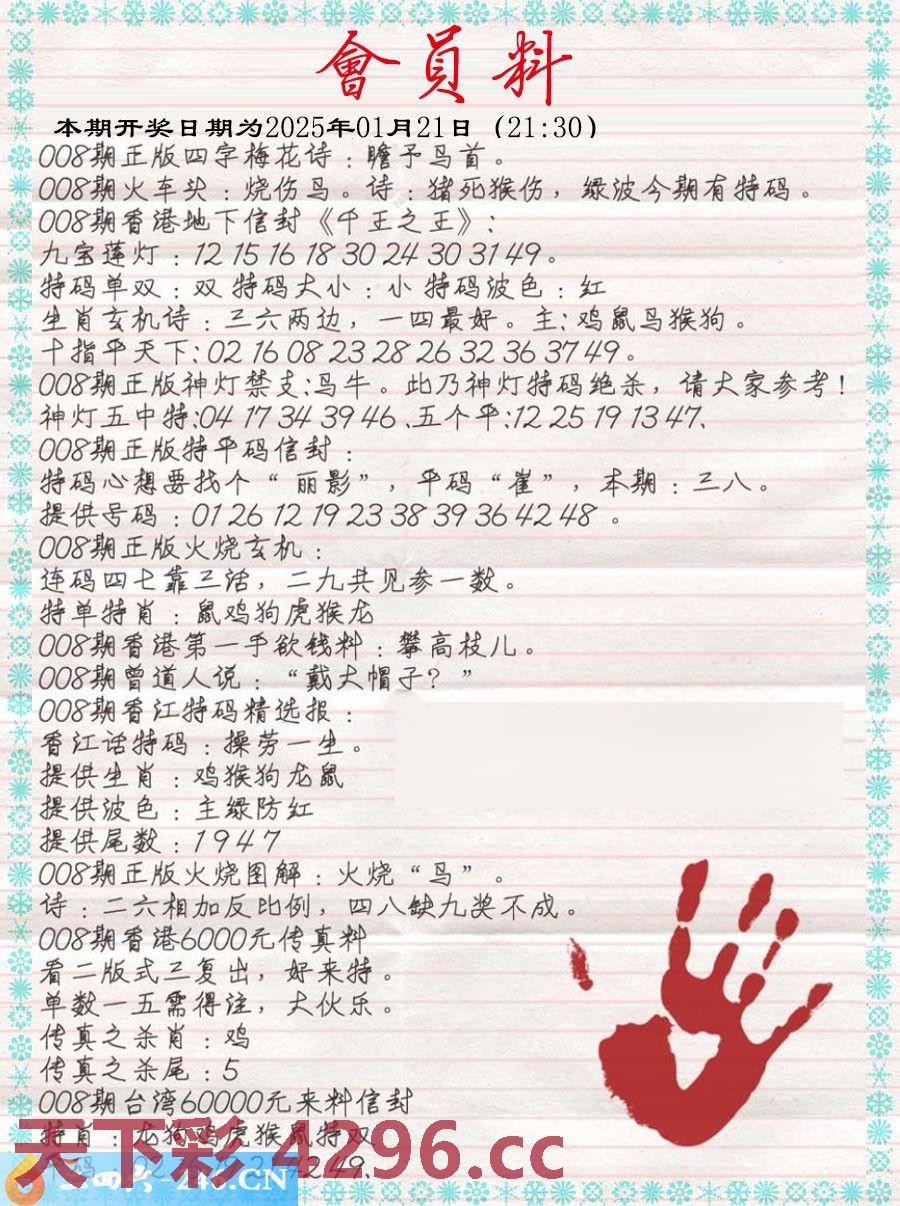 會員料
本期开奖日期为2025年01月21日（21:30）
008期正版四字梅花诗：瞻予鸟首。
008期火车头：烧伤鸟。诗：猪死猴伤，绿波今期有特码。
008期香港地下信封《千王之王》：
九宝莲灯：12 15 16 18 30 24 30 31 49。
特码单双：双 特码大小：小 特码波色：红
生肖玄机诗：三六两边，一四最好。主：鸡鼠鸟猴狗。
十指平天下：02 16 08 23 28 26 32 36 37 49。
008期正版神灯禁支：鸟牛。此乃神灯特码绝杀，请大家参考！
神灯五中特：04 17 34 39 46、五个平：12 25 19 13 47、
008期正版特平码信封：
特码心想要找个“丽影”，平码“崔”，本期：三八。
提供号码：01 26 12 19 23 38 39 36 42 48 。
008期正版火烧玄机：
连码四七靠三活，二九共见参一数。
特单特肖：鼠鸡狗虎猴龙
008期香港第一手欲钱料：攀高枝儿。
008期曾道人说：“戴大帽子？”
008期香江特码精选报：
香江话特码：操劳一生。
提供生肖：鸡猴狗龙鼠
提供波色：主绿防红
提供尾数：1 9 4 7
008期正版火烧图解：火烧“鸟”。
诗：二六相加反比例，四八缺九奖不成。
008期香港6000元传真料
看二版式三复出，好来特。
单数一五需得注，大伙乐。
传真之杀肖：鸡
传真之杀尾：5
008期台湾60000元来料信封
特肖：龙狗鸡虎猴鼠特双
天下彩.4296.cc
246.CN